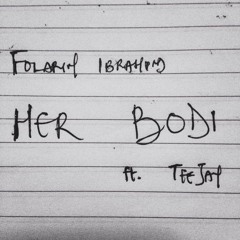 FOLARIN IBRAHIM
HER BODI
ft. TEEJAY